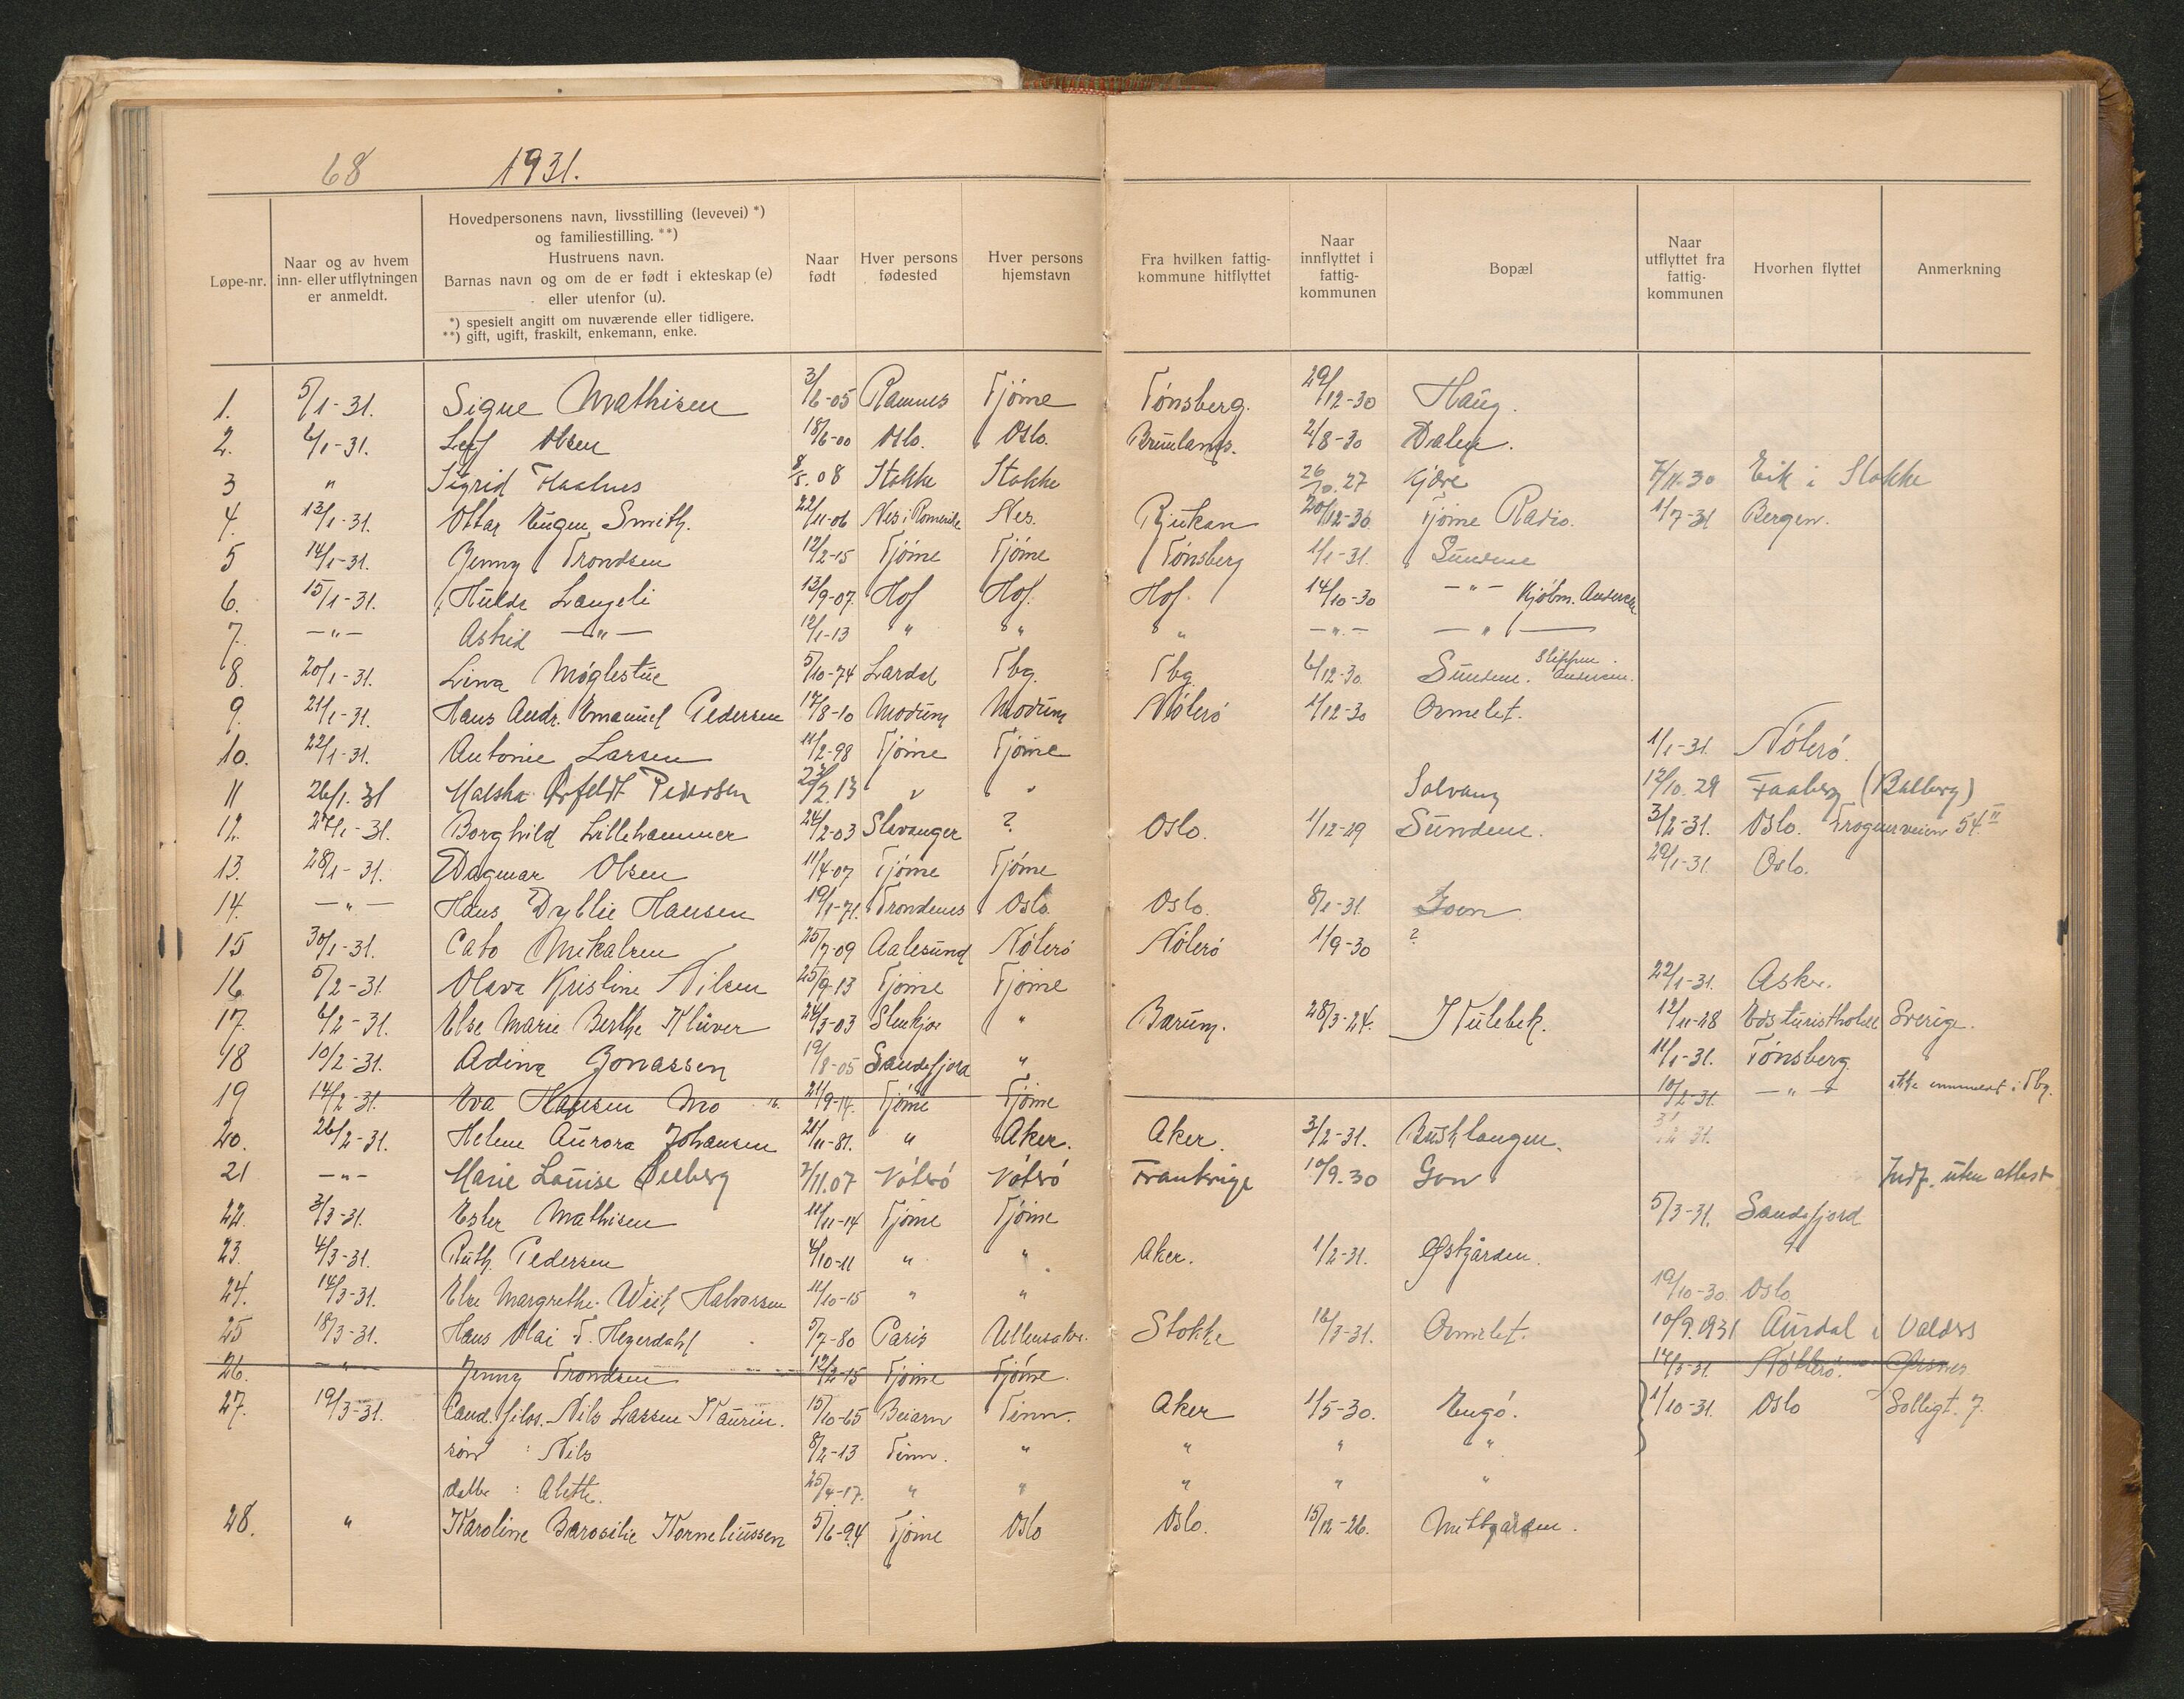 68 1931.
Løpe-nr. Naar og av hvem inn- eller utflytningen er anmeldt. Hovedpersonens navn, livsstilling (levevei) *) og familiestilling. **) Hustruens navn. Barnas navn og om de er født i ekteskap (e) eller utenfor (u). *) spesielt angitt om nuværende eller tidligere. **) gift, ugift, fraskilt, enkemann, enke. Naar født Hver persons fødested Hver persons hjemstavn Fra hvilken fattig-kommune hitflyttet Naar innflyttet i fattig-kommunen Bopæl Naar utflyttet fra fattig-kommunen Hvorhen flyttet Anmerkning
1. 5/1-31. Signe Mathisen 3/6-05 Ramnes Tjöme Tönsberg. 29/12-30 Haug.
2. 6/1-31. Leif Olsen 18/6-00 Oslo. Oslo. Brunlanes. 2/8-30 Dalen.
3 " Sigrid Haalnes 8/5.08 Stokke Stokke 26/10.27 Kjære 7/11.30 Eik i Stokke
4. 13/1-31. Ottar Eugen Smith. 22/11-06 Nes i Romerike Nes. Rjukan 20/12-30 Tjöme Radio. 1/7-31 Bergen.
5 14/1-31. Jenny Trondsen 12/2-15 Tjöme Tjöme Tönsberg 1/1-31. Sundene
6. 15/1-31. Hulda Langeli 13/9-07. Hof Hof. Hof. 14/10-30 -"- Kjöbm. Andersen
7. -"- Astrid -"- 12/1-13 " " " -"- -"-
8. 20/1-31. Lina Möglestue 5/10-74 Lardal Tbg. Tbg. 6/12-30. Sundene. Slippen. Andersen.
9. 21/1-31. Hans Andr. Emanuel Pedersen 17/8-10 Modum Modum Nöterö 1/12-30 Ormelet.
10. 22/1-31. Antonie Larsen 11/2-98 Tjöme Tjöme 1/1-31. Nöterö.
11 26/1.31 Orfeldt Pedersen 23/2.13 " " Solvang 12/10.29 Faaberg (Balberg)
12. 27/1-31. Borghild Lillehammer 24/2-03 Stavanger ? Oslo. 1/12-29 Sundene. 3/2-31. Oslo. Frognerveien 54.II
13. 28/1-31. Dagmar Olsen 11/4-07 Tjöme Tjöme 29/1-31. Oslo.
14. -"- Hans Dyblie Hansen 19/1-71. Trondenes Oslo. Oslo. 8/1-31.
15 30/1-31. Cato Mikalsen 25/7-09 Aalesund Nöterö Nöterö 1/9-30 ?
16 5/2-31. Olava Kristine Nilsen 25/9-13 Tjöme Tjöme 22/1-31. Asker.
17. 6/2-31. Else Marie Berthe Klüver 24/3-03 Stenkjær " Bærum. 28/3-24. Kulebek. 12/11-28 Eds turisthotell Sverige.
18 10/2-31. Adina Jonassen 19/8-05 Sandefjord " 11/1-31. Tönsberg.
19 14/2-31. Eva Hansen Mo 21/9-14. Tjöme Tjöme 10/2-31. -"- ikke innmeldt i Tbg.
20. 26/2-31. Helene Aurora Johansen 21/11-81. " Aker. Aker. 3/2-31. Budslangen.
21 -"- Marie Louise Seeberg 7/11.07 Nöterö Nöterö Frankrige 10/9.30 Gon Indf. uten attest
22. 3/3-31. Ester Mathisen 11/11-14 Tjöme Tjöme 5/3-31. Sandefjord
23. 4/3-31. Ruth Pedersen 4/10-11 " " Aker. 1/2-31. Østgården.
24. 14/3-31. Else Margrethe Wiik Halvorsen 11/10-15 " " 19/10-30. Oslo
25 18/3-31. Hans Olai T. Hegerdahl 5/7-80 Paris Ullensaker. Stokke 16/3-31. Ormelet. 10/9.1931 Aurdal i Valdres
26. -"- Jenny Trondsen 12/2-15 Tjöme Tjöme. 14/3-31. Nötterö.
27. 19/3-31. Cand. filos. Nils Lassen Kaurin. 15/10-65 Beiarn Tinn. Aker 1/5-30. Engö. 1/10-31. Oslo Solligt. 7.
sønn : Nils 8/2-13 Tinn. " " " "
datter : Alette. 25/4-17. " " " " "
28. " Karoline Barosilie Korneliussen 5/6-94 Tjöme Oslo Oslo. 15/12-26. Mittgården.